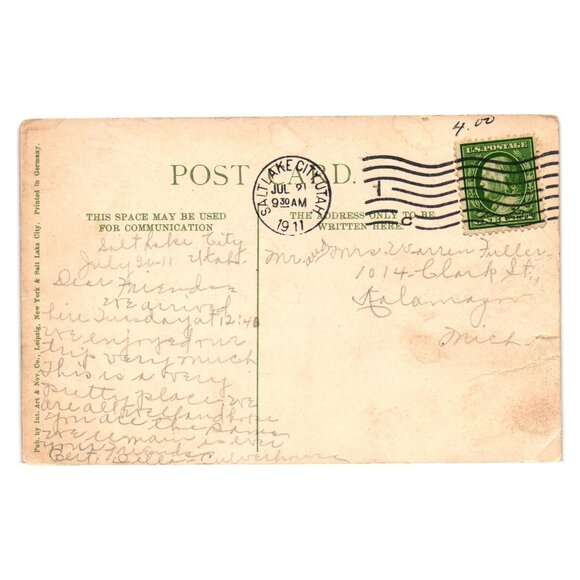 4.00
U.S. POSTAGE
POST CARD.
SALT LAKE CITY, UTAH
JUL 21
9 30 AM
1911
1
C
THIS SPACE MAY BE USED
FOR COMMUNICATION
THE ADDRESS ONLY TO BE
WRITTEN HERE
Salt Lake City
July 20-11 Utah
Dear Friends
We arrived
here Tuesday at 12:40
we enjoyed our
trip very much
This is a very
pretty place we
are all well and hope
you are the same
we remain as ever
your friends
Bert, Culverhouse
Mr. and Mrs. Warren Fuller
1014-Clark St.,
Kalamazoo
Mich.
Pub. by Int. Art & Nov. Co., Leipzig, New York & Salt Lake City. Printed in Germany.